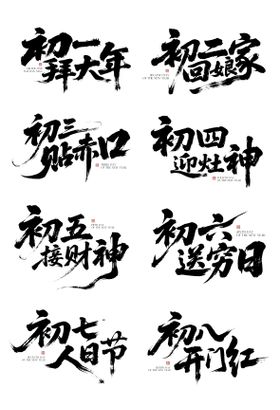 初一
拜大年
初二
回娘家
初三
贴赤口
初四
迎灶神
初五
接财神
初六
送穷日
初七
人日节
初八
开门红